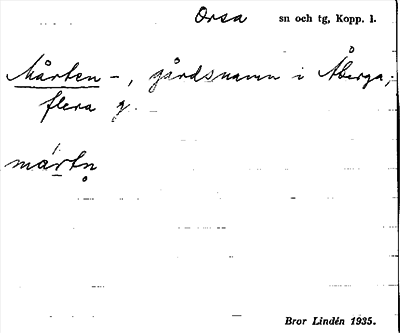 Orsa sn och tg, Kopp. l.
Mårten -, gårdsnamn i Åberga;
flera g.
mártn̥
Bror Lindén 1935.